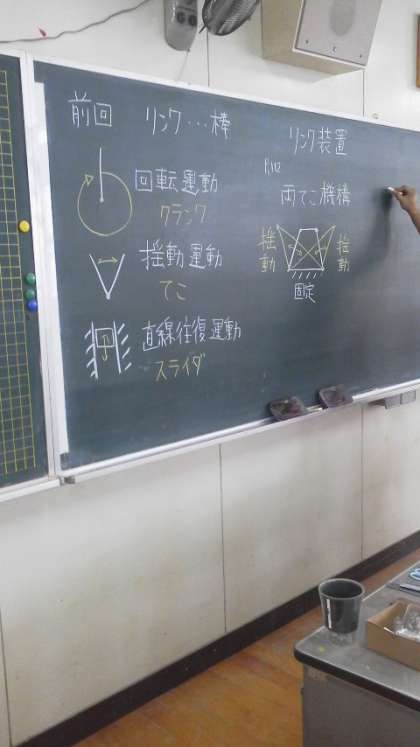 前回 リンク…棒
回転運動
クランク
揺動運動
てこ
直線往復運動
スライダ
リンク装置
P.112
両てこ機構
揺動 揺動
固定